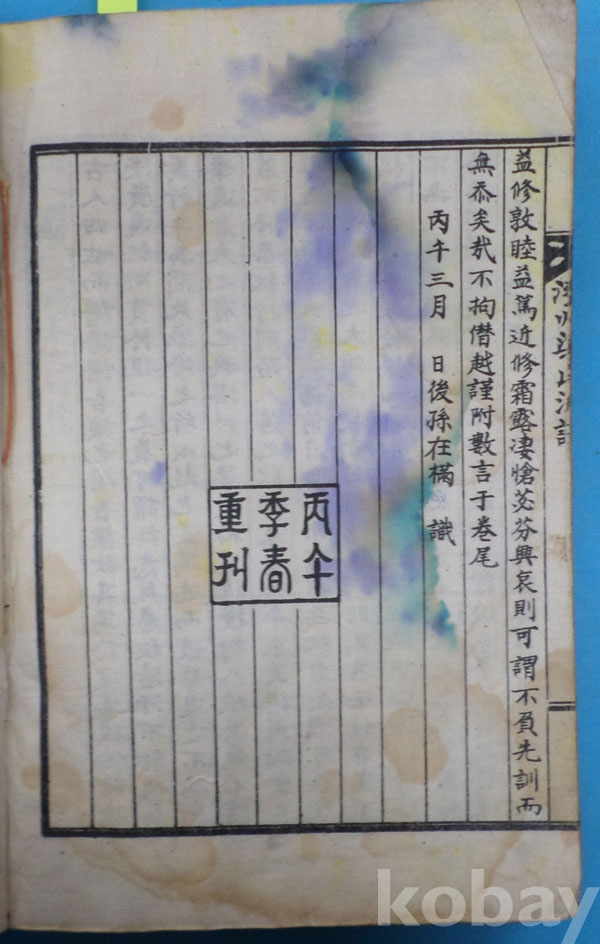 益修敦睦益篤近修霜露凄愴苾芬興哀則可謂不負先訓而
無忝矣哉不拘僭越謹附數言于卷尾
丙午三月 日後孫在樠 識
丙午
季春
重刊
kobay